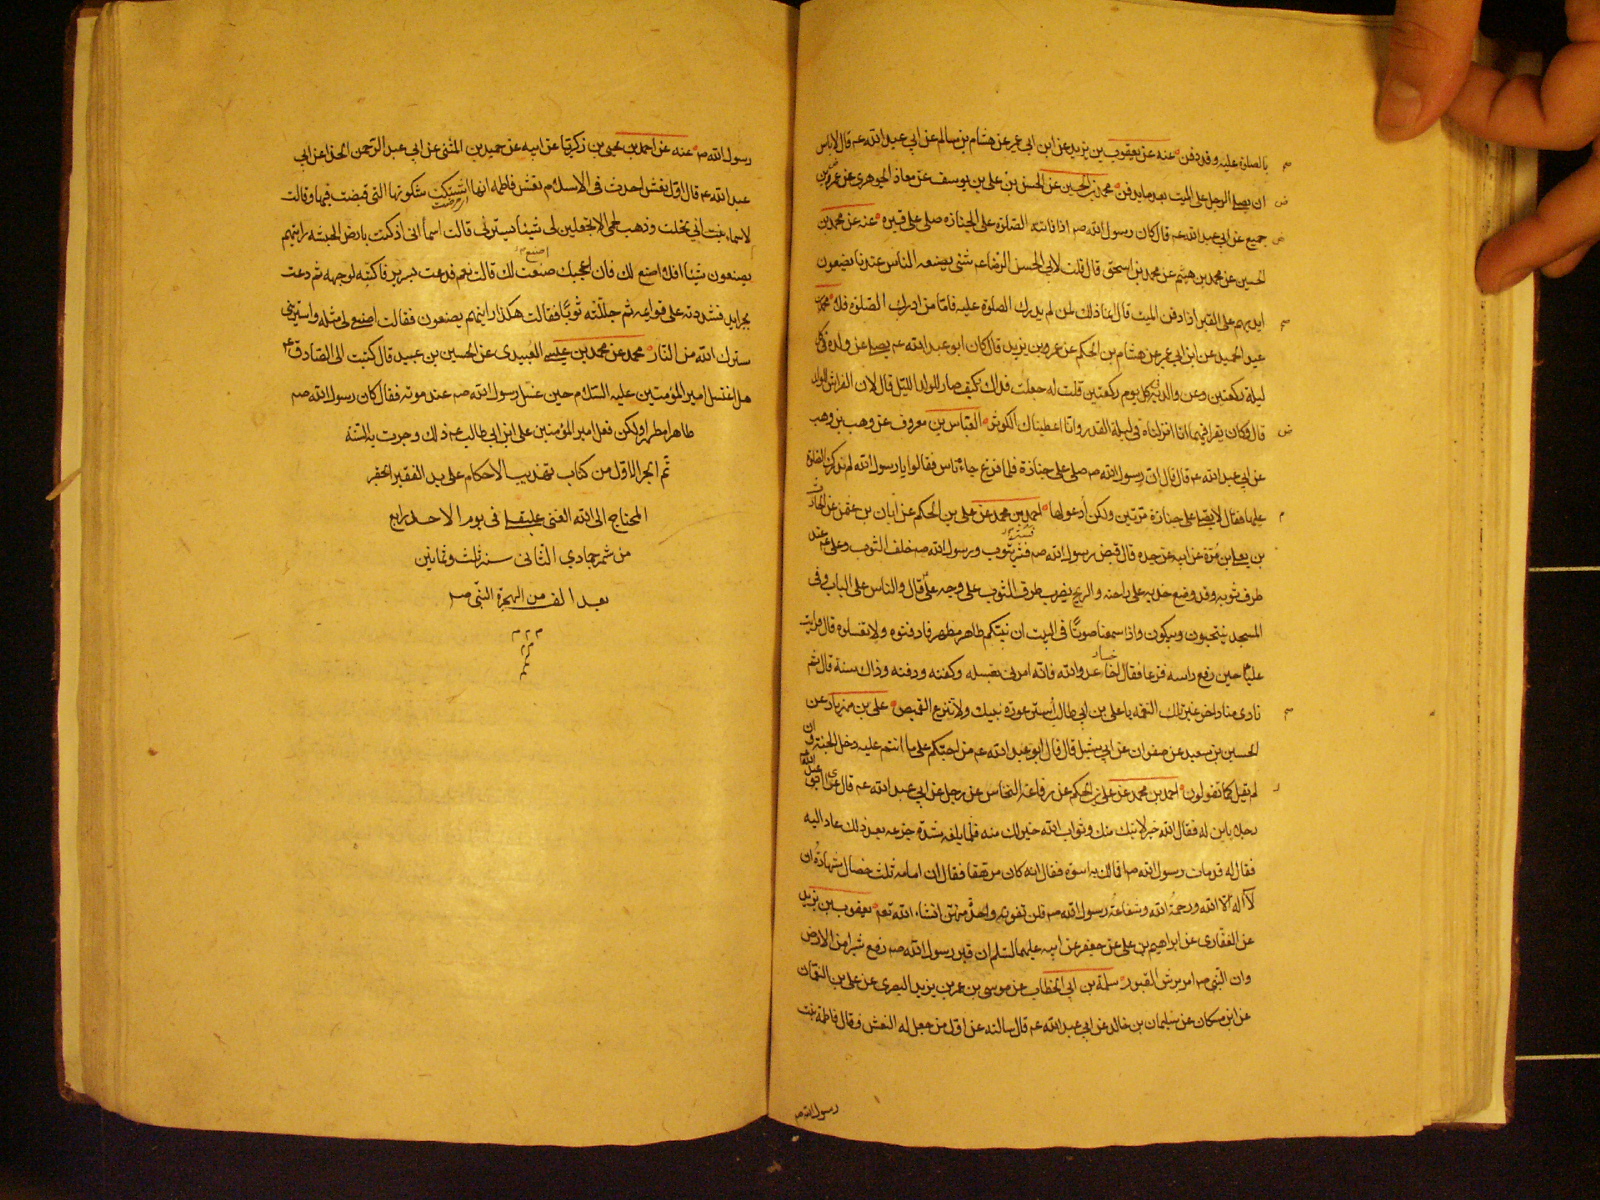 بالصلوة عليه وقد دفن عنه عن يعقوب بن يزيد عن ابن ابي عمير عن هشام بن سالم عن ابي عبد الله عم قال لا باس
ان يصلي الرجل على الميت بعد ما يدفن محمد بن الحسين عن الحسن بن علي بن يوسف عن معاذ الجوهري عن عمرو بن
جميع عن ابي عبد الله عم قال كان رسول الله صم اذا فاتته الصلوة على الجنازه صلى على قبره عنه عن محمد بن
الحسين عن محمد بن هيثم عن محمد بن اسحق قال قلت لابي الحسن الرضا عم شئ يصنعه الناس عندنا يضعون
ايديهم على القبر اذا دفن الميت قال انما ذلك لمن لم يدرك الصلوة عليه فاما من ادرك الصلوة فلا محمد بن
عبد الحميد عن ابن ابي عمير عن هشام بن الحكم عن عمرو بن يزيد قال كان ابو عبد الله عم يصلي عن ولده في كل
ليلة ركعتين وعن والديه في كل يوم ركعتين قلت له جعلت فداك كيف صار للولد الليل قال لان الفراش للولد
قال وكان يقرا فيهما انا انزلناه في ليلة القدر وانا اعطيناك الكوثر العباس بن معروف عن وهب بن وهب
عن ابي عبد الله عم قال قال ان رسول الله صم صلى على جنازة فلما فرغ جاء ناس فقالوا يا رسول الله لم ندرك الصلوة
عليها فقال لا يصلى على جنازة مرتين ولكن ادعوا لها احمد بن محمد عن علي بن الحكم عن ابان بن عثمن عن الحارث
بن يعلى بن مرة عن ابيه عن جده قال قبض رسول الله صم فستر بثوب ورسول الله صم خلف الثوب وعلي عم عند
طرف ثوبه وقد وضع خديه على راحته والريح يضرب طرف الثوب على وجه علي قال والناس على الباب وفي
المسجد ينتحبون ويبكون واذا سمعنا صوتا في البيت ان نبيكم طاهر مطهر فادفنوه ولا تغسلوه قال فرايت
عليا حين رفع راسه فزعا فقال اخسا عدو الله فانه امرني بغسله وكفنه ودفنه وذاك سنة قال ثم
نادى مناد اخر غير تلك النغمه يا علي بن ابي طالب استر عورة نبيك ولا تنزع القميص علي بن مهزيار عن
الحسين بن سعيد عن صفوان عن ابي شبل قال قال ابو عبد الله عم من احبكم على ما انتم عليه دخل الجنة وان
لم يقل كما تقولون احمد بن محمد عن علي بن الحكم عن رفاعة النخاس عن رجل عن ابي عبد الله عم قال عزى ابو عبد الله
رجلا بابن له فقال الله خير لابنك منك وثواب الله خير لك منه فلما بلغه شدة جزعه بعد ذلك عاد اليه
فقال له قد مات رسول الله صم افما لك به اسوة فقال انه كان مرهقا فقال ان امامه ثلث خصال شهادة ان
لا اله الا الله ورحمة الله وشفاعة رسول الله صم فلن تفوته واحدة منهن انشاء الله تعم يعقوب بن يزيد
عن الغفاري عن ابراهيم بن علي عن جعفر عن ابيه عليهما السلم ان قبر رسول الله صم رفع شبرا من الارض
وان النبي صم امر برش القبور سلمة بن ابي الخطاب عن موسى بن عمر بن يزيد البصري عن علي بن النعمان
عن ابن مسكان عن سليمان بن خالد عن ابي عبد الله عم قال سالته عن اول من جعل له النعش فقال فاطمة بنت
رسول الله صم
رسول الله صم عنه عن احمد بن يحيى بن زكريا عن ابيه عن حميد بن المثنى عن ابي عبد الرحمن الحذا عن ابي
عبد الله عم قال اول نعش احدث في الاسلام نعش فاطمه انها اشتكت شكوتها التي قبضت فيها وقالت
لاسماء بنت اني نحلت وذهب لحمي الا تجعلين لي شيئا يسترني قالت اسما اني اذ كنت بارض الحبشه رايتهم
يصنعون شيئا افلا اصنع لك فان اعجبك صنعت لك قالت نعم فدعت بسرير فاكبته لوجهه ثم دعت
بجرايد فشددته على قوايمه ثم جللته ثوبا فقالت هكذا رايتهم يصنعون فقالت اصنعي لي مثله واستريني
سترك الله من النار محمد عن محمد بن عيسى العبيدي عن الحسين بن عبيد قال كتبت الى الصادق عم
هل اغتسل امير المؤمنين عليه السلام حين غسل رسول الله صم عند موته فقال كان رسول الله صم
طاهرا مطهرا ولكن فعل امير المؤمنين علي بن ابي طالب عم ذلك وجرت به السنة
تم الجزء الاول من كتاب تهذيب الاحكام على يد الفقير الحقير
المحتاج الى الله الغني علي في يوم الاحد رابع
من شهر جمادي الثاني سنه ثلث وثمانين
بعد الف من الهجرة النبي صم